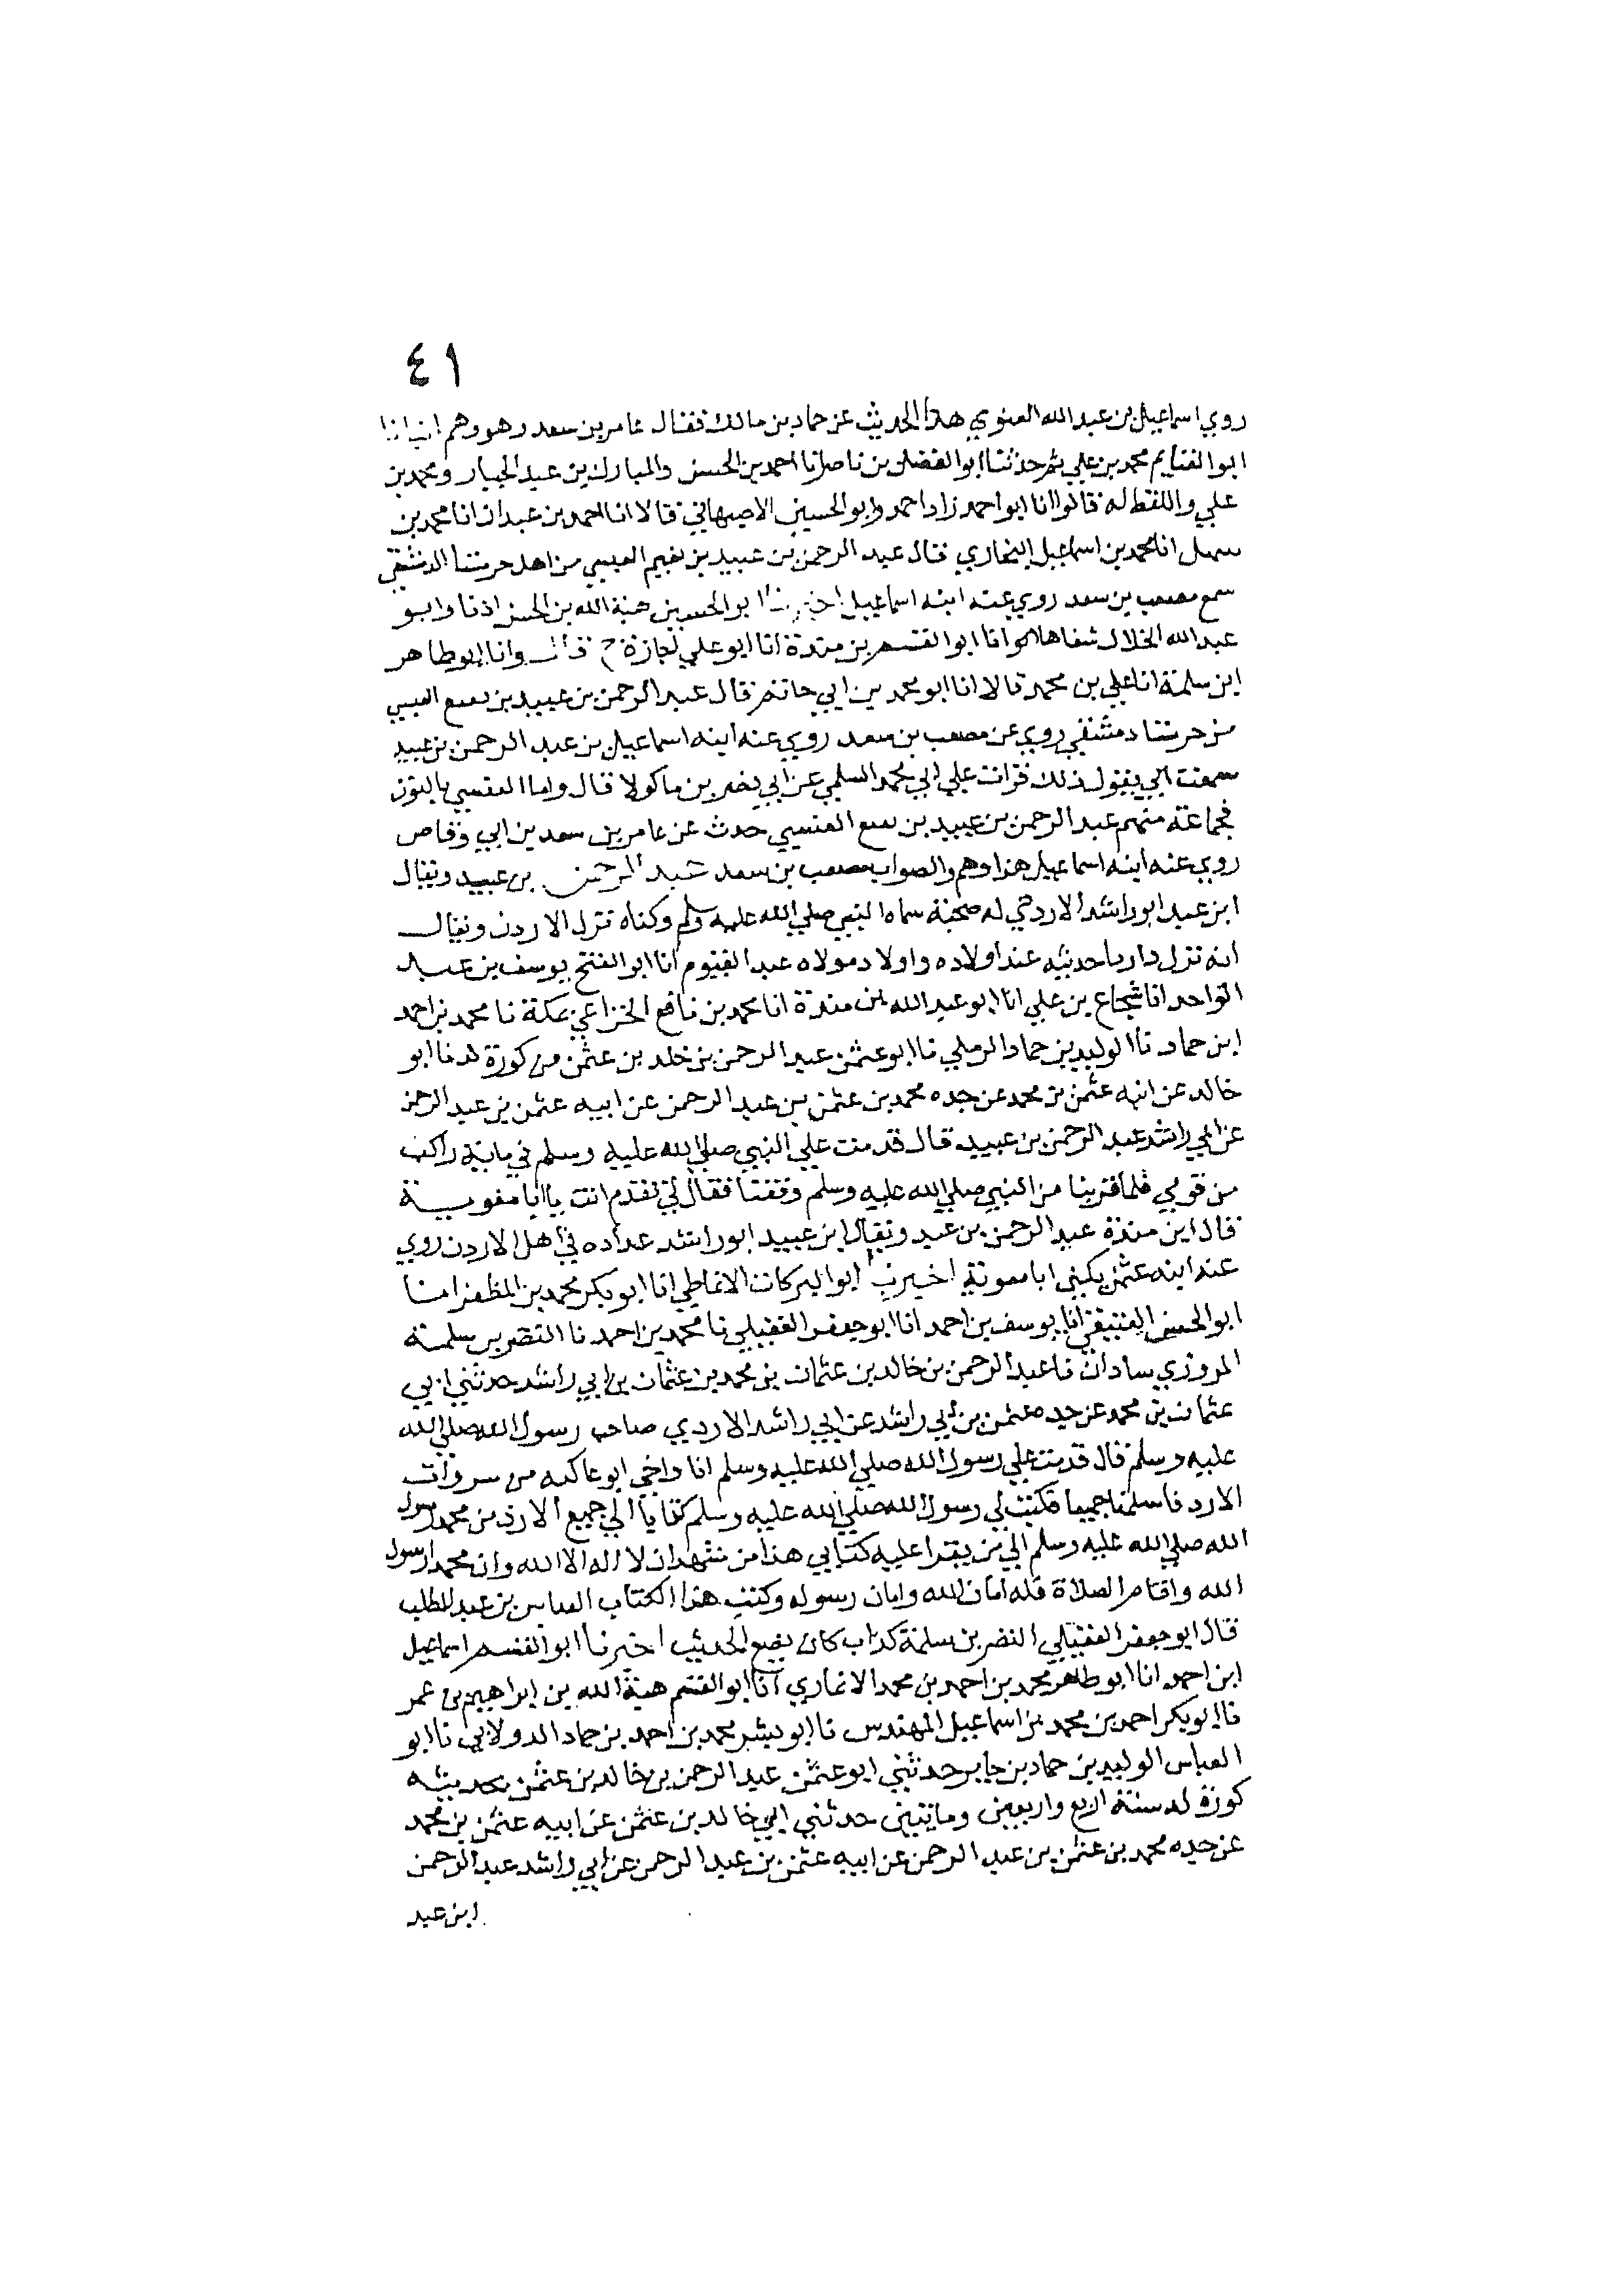 ٤١
روي اسماعيل بن عبد الله العنوي هذا الحديث عن حماد بن مالك فقال عامر بن سعد وهو وهم انبانا
ابو الغنايم محمد بن علي ثم حدثنا ابو الفضل بن ناصر انا احمد بن الحسن والمبارك بن عبد الجبار ومحمد بن
علي واللفظ له قالوا انا ابو احمد زاد احمد وابو الحسين الاصبهاني قالا انا احمد بن عبدان انا محمد بن
سهل انا محمد بن اسماعيل البخاري قال عبد الرحمن بن عبيد بن نفيع العبسي من اهل حرستا الدمشقي
سمع مصعب بن سعد روي عنه ابنه اسماعيل اخبرنا ابو الحسين هبة الله بن الحسن اذنا وابو
عبد الله الخلال شفاها انا ابو القسم بن مندة انا ابو علي اجازة ح قال وانا ابو طاهر
ابن سلمة انا علي بن محمد قالا انا ابو محمد بن ابي حاتم قال عبد الرحمن بن عبيد بن نفيع العبسي
من حرستا دمشقي روي عن مصعب بن سعد روي عنه ابنه اسماعيل بن عبد الرحمن بن عبيد
سمعت ابي يقول ذلك قرات علي ابي محمد السلمي عن ابي نصر بن ماكولا قال واما العنسي بالنون
فجماعة منهم عبد الرحمن بن عبيد بن نفيع العنسي حدث عن عامر بن سعد بن ابي وقاص
روي عنه ابنه اسماعيل هذا وهم والصواب مصعب بن سعد عبد الرحمن بن عبيد ويقال
ابن عبد ابو راشد الازدي له صحبة سماه النبي صلي الله عليه وسلم وكناه نزل الاردن ويقال
انه نزل داريا حديثه عند اولاده واولاد مولاه عبد القيوم انا ابو الفتح يوسف بن عبد
الواحد انا شجاع بن علي انا ابو عبد الله بن مندة انا محمد بن نافع الخزاعي بمكة نا محمد بن احمد
ابن حماد نا الوليد بن حماد الرملي نا ابو عثمن عبد الرحمن بن خلد بن عثمن من كورة لد نا ابو
خالد عن ابيه عثمن بن محمد عن جده محمد بن عثمن بن عبد الرحمن عن ابيه عثمن بن عبد الرحمن
عن ابي راشد عبد الرحمن بن عبيد قال قدمت علي النبي صلي الله عليه وسلم في ماية راكب
من قومي فلما قربنا من النبي صلي الله عليه وسلم وقفنا فقال لي تقدم انت يا ابا مغوية
قال ابن مندة عبد الرحمن بن عبد ويقال ابن عبيد ابو راشد عداده في اهل الاردن روي
عنه ابنه عثمن يكني ابا معوية اخبرنا ابو البركات الانماطي انا ابو بكر محمد بن المظفر انا
ابو الحسن العتيقي انا يوسف بن احمد انا ابو جعفر العقيلي نا محمد بن احمد نا النضر بن سلمة
المروزي سادان نا عبد الرحمن بن خالد بن عثمان بن محمد بن عثمان بن ابي راشد حدثني ابي
عثمان بن محمد عن جده عثمن بن ابي راشد عن ابي راشد الازدي صاحب رسول الله صلي الله
عليه وسلم قال قدمت علي رسول الله صلي الله عليه وسلم انا واخي ابو عاكيه من سروات
الازد فاسلمنا جميعا فكتب لي رسول الله صلي الله عليه وسلم كتابا الي جميع الازد من محمد رسول
الله صلي الله عليه وسلم الي من يقرا عليه كتابي هذا من شهد ان لا اله الا الله وان محمدا رسول
الله واقام الصلاة فله امان الله وامان رسوله وكتب هذا الكتاب العباس بن عبد المطلب
قال ابو جعفر العقيلي النضر بن سلمة كذاب كان يضع الحديث اخبرنا ابو القسم اسماعيل
ابن احمد انا ابو طاهر محمد بن احمد بن محمد الانباري انا ابو القسم هبة الله بن ابراهيم بن عمر
نا ابو بكر احمد بن محمد بن اسماعيل المهندس نا ابو بشر محمد بن احمد بن حماد الدولابي نا ابو
العباس الوليد بن حماد بن جابر حدثني ابو عثمن عبد الرحمن بن خالد بن عثمن بحديثه
كورة لد سنة اربع واربعين ومايتين حدثني ابي خالد بن عثمن عن ابيه عثمن بن محمد
عن جده محمد بن عثمن بن عبد الرحمن عن ابيه عثمن بن عبد الرحمن عن ابي راشد عبد الرحمن
ابن عبد